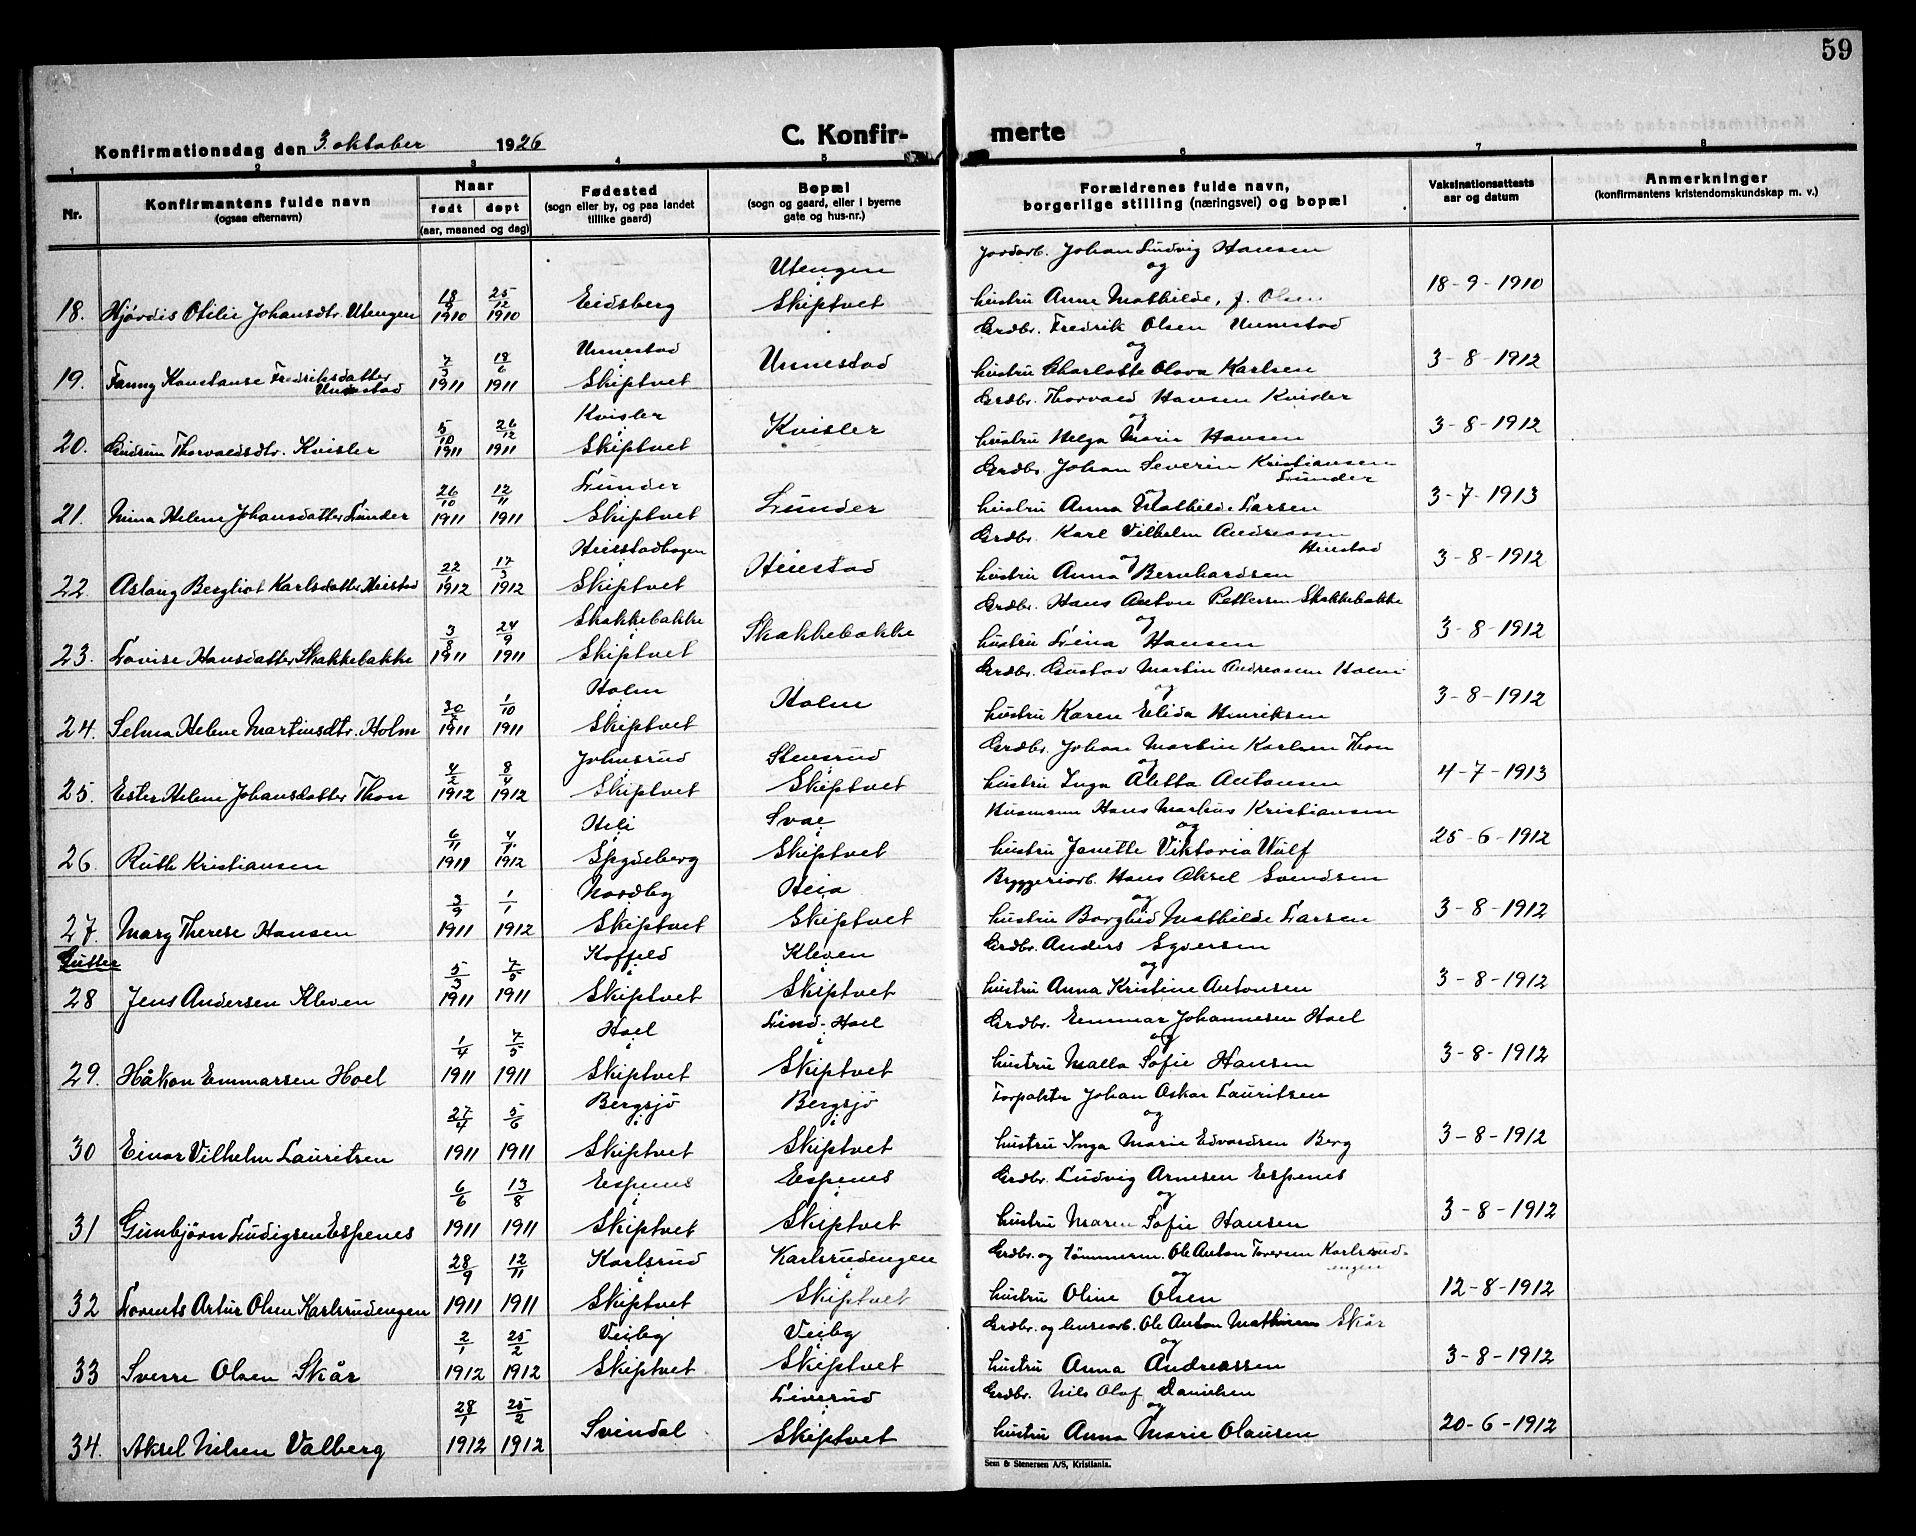 59
Konfirmationsdag den 3. oktober 1926
C. Konfir- merte
1 2 3 4 5 6 7 8
Nr.
Konfirmantens fulde navn
(ogsaa efternavn)
Naar
født døpt
(aar, maaned og dag)
Fødested
(sogn eller by, og paa landet
tillike gaard)
Bopæl
(sogn og gaard, eller i byerne
gate og hus-nr.)
Forældrenes fulde navn,
borgerlige stilling (næringsvei) og bopæl
Vaksinationsattests
aar og datum
Anmerkninger
(konfirmantens kristendomskundskap m. v.)
Utengen Jordarb. Johan Ludvig Hansen
og
18. Hjørdis Otilie Johansdtr. Utengen 18/9 1910 25/12 1910 Eidsberg Skiptvet hustru Anne Mathilde, f. Olsen 18-9-1910
Unnestad Unnestad Grdbr. Fredrik Olsen Unnestad
og
19. Fanny Konstanse Fredriksdatter Unnestad 7/3 1911 18/6 1911 Skiptvet hustru Charlotte Olava Karlsen 3-8-1912
Kvisler Kvisler Grdbr. Thorvald Hansen Kvisler
og
20. Gudrun Thorvaldsdtr. Kvisler 5/10 1911 26/12 1911 Skiptvet hustru Helga Marie Hansen 3-8-1912
Lunder Lunder Grdbr. Johan Severin Kristiansen Lunder
og
21. Nina Helene Johansdatter Lunder 26/10 1911 12/11 1911 Skiptvet hustru Anna Mathilde Larsen 3-7-1913
Heiestad Grdbr. Karl Vilhelm Andreassen
og
22. Aslaug Bergliot Karlsdatter 1912 17/3 1912 Skiptvet hustru Anna Bernhardsen 3-8-1912
Skakkebakke Skakkebakke Grdbr. Hans Anton Pettersen Skakkebakke
og
23. Lovise Hansdatter Skakkebakke 3/8 1911 24/9 1911 Skiptvet hustru Lina Hansen 3-8-1912
Holm Holm Grdbr. Gustav Martin Andreassen Holm
og
24. Selma Helene Martinsdtr. Holm 1911 1/10 1911 Skiptvet hustru Karen Elida Henriksen 3-8-1912
Johnsrud Stensrud Grdbr. Johan Martin Karlsen Thon
og
25. Ester Helene Johansdatter Thon 4/2 1912 8/4 1912 Skiptvet Skiptvet hustru Inga Aletta Antonsen 4-7-1913
Heli Svae Husmann Hans Markus Kristiansen
og
26. Ruth Kristiansen 6/11 1911 1912 Spydeberg Skiptvet hustru Janette Viktoria Wulf 25-6-1912
Nordby Heia Bryggeriarb. Hans Aksel Svendsen
og
27. Mary Therese Hansen 3/9 1911 1/1 1912 Skiptvet Skiptvet hustru Borghild Mathilde Larsen 3-8-1912
Gutter
Koffeld Kleven Grdbr. Anders Syversen
og
28 Jens Andersen Kleven 5/3 1911 7/5 1911 Skiptvet Skiptvet hustru Anna Kristine Antonsen 3-8-1912
Hoel Lind-Hoel Grdbr. Emmar Johannesen Hoel
og
29. Håkon Emmarsen Hoel 1/4 1911 7/5 1911 Skiptvet Skiptvet hustru Malla Sofie Hansen 3-8-1912
Bergsjö Bergsjö Forpakter Johan Oskar Lauritsen
og
30 Einar Vilhelm Lauritsen 27/4 1911 5/6 1911 Skiptvet Skiptvet hustru Inga Marie Edvardsen Berg 3-8-1912
Espenes Espenes Grdbr. Ludvig Arnesen Espenes
og
31 Gunbjørn Ludigsen Espenes 6/6 1911 13/8 1911 Skiptvet Skiptvet hustru Maren Sofie Hansen 3-8-1912
Karlsrud Karlsrudengen Grdbr. og tømmerm. Ole Anton Toresen Karlsrud-
engen
og
32 Lorents Artur Olsen Karlsrudengen 28/9 1911 12/11 1911 Skiptvet Skiptvet hustru Oline Olsen 12-8-1912
Veiby Veiby Grdbr. og Ole Anton Mathisen Skår
og
33 Sverre Olsen Skår 2/1 1912 25/2 1912 Skiptvet Skiptvet hustru Anna Andreassen 3-8-1912
Liverud Grdbr. Nils Olaf Danielsen
og
34. Aksel Nilsen Valberg 28/1 1912 25/2 1912 Svindal Skiptvet hustru Anna Marie Olausen 20-6-1912
Sem & Stenersen A/S, Kristiania.